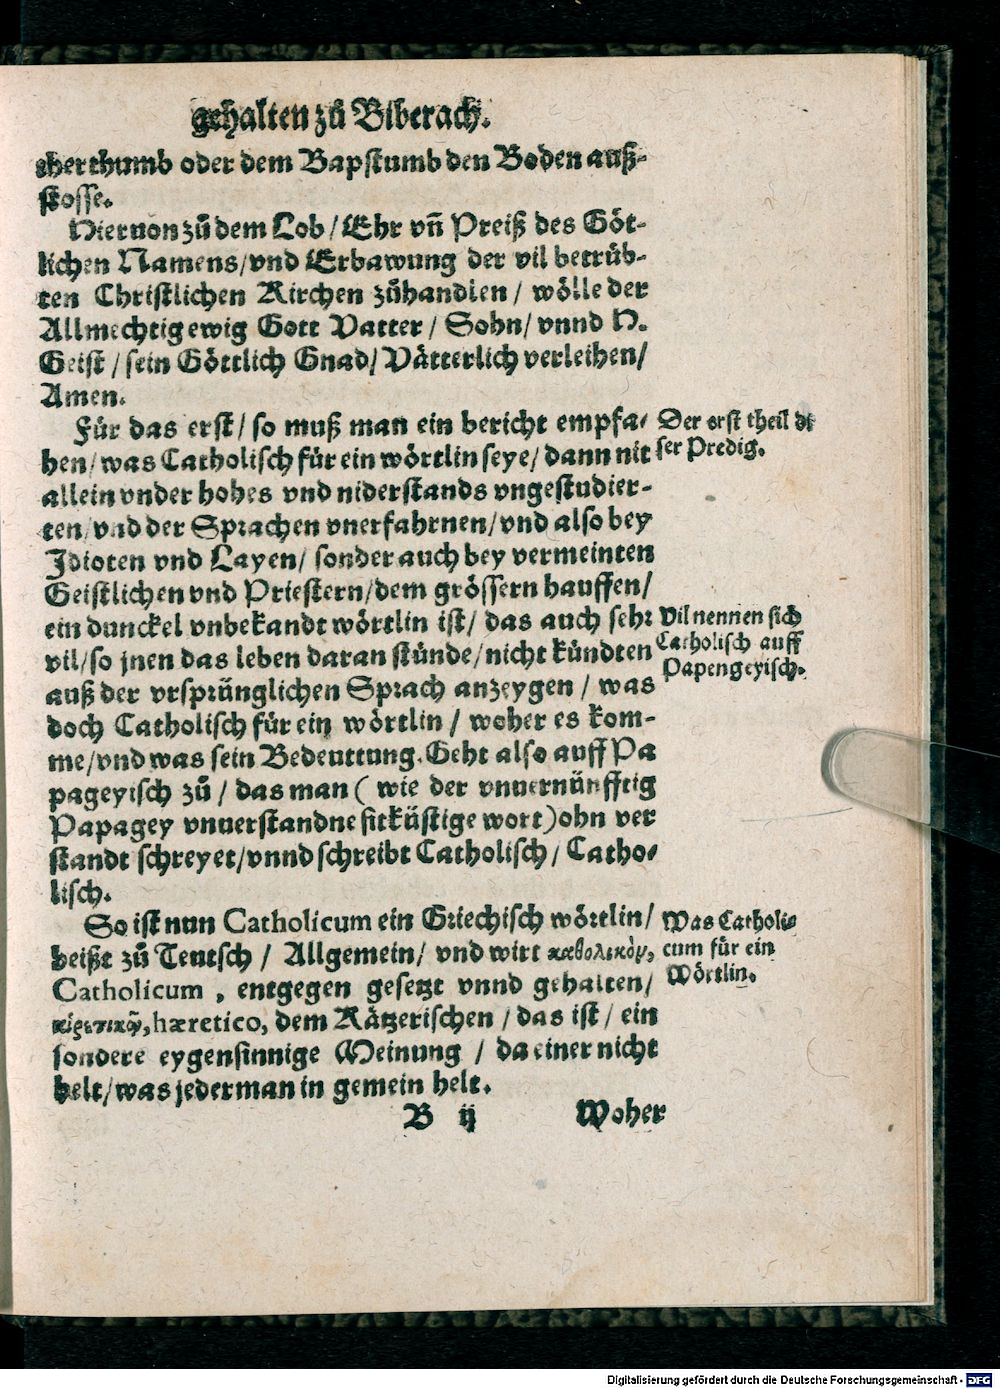 gehalten zů Biberach.
therthumb oder dem Bapstumb den Boden auß-
stosse.
Hieruon zů dem Lob / Ehr vñ Preiß des Göt-
lichen Namens / vnd Erbawung der vil betrüb-
ten Christlichen Kirchen zůhandlen / wölle der
Allmechtig ewig Gott Vatter / Sohn / vnnd H.
Geist / sein Göttlich Gnad / Vätterlich verleihen /
Amen.
Für das erst / so muß man ein bericht empfa-
hen / was Catholisch für ein wörtlin seye / dann nit
allein vnder hohes vnd niderstands vngestudier-
ten / vnd der Sprachen vnerfahrnen / vnd also bey
Idioten vnd Layen / sonder auch bey vermeinten
Geistlichen vnd Priestern / dem grössern hauffen /
ein dunckel vnbekandt wörtlin ist / das auch sehr
vil / so jnen das leben daran stünde / nicht kündten
auß der vrsprünglichen Sprach anzeygen / was
doch Catholisch für ein wörtlin / woher es kom-
me / vnd was sein Bedeuttung. Geht also auff Pa
pageyisch zů / das man ( wie der vnuernünfftig
Papagey vnuerstandne sittküstige wort ) ohn ver
standt schreyet / vnnd schreibt Catholisch / Catho-
lisch.
So ist nun Catholicum ein Griechisch wörtlin /
heißt zů Teutsch / Allgemein / vnd wirt καθολικὸν,
Catholicum , entgegen gesetzt vnnd gehalten /
hæretico, dem Kätzerischen / das ist / ein
sondere eygensinnige Meinung / da einer nicht
helt / was jederman in gemein helt.
B ij Woher
Der erst theil di
ser Predig.
Vil nennen sich
Catholisch auff
Papengeyisch.
Was Catholi-
cum für ein
Wörtlin.
Digitalisierung gefördert durch die Deutsche Forschungsgemeinschaft - DFG